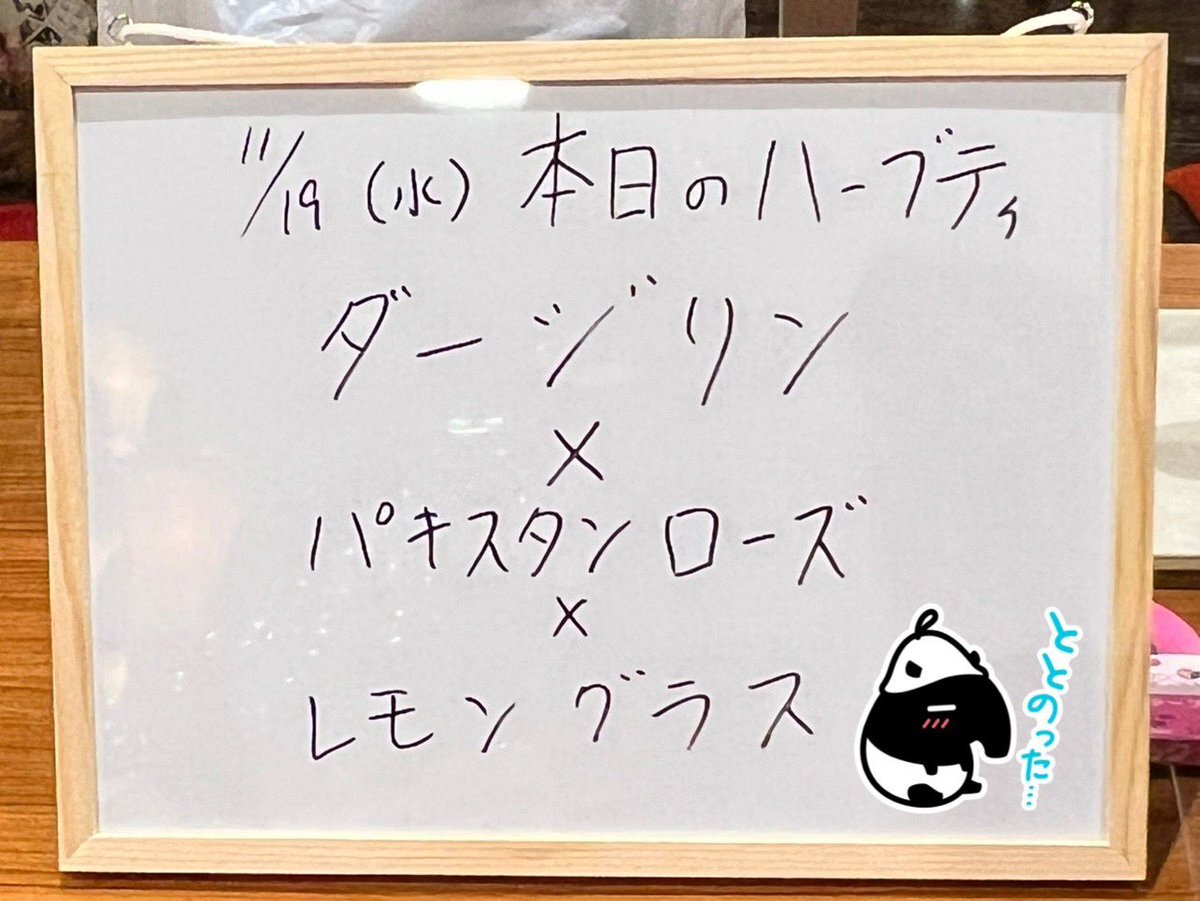 11/19 (水) 本日のハーブティ
ダージリン
×
パキスタンローズ
×
レモングラス
ととのった…